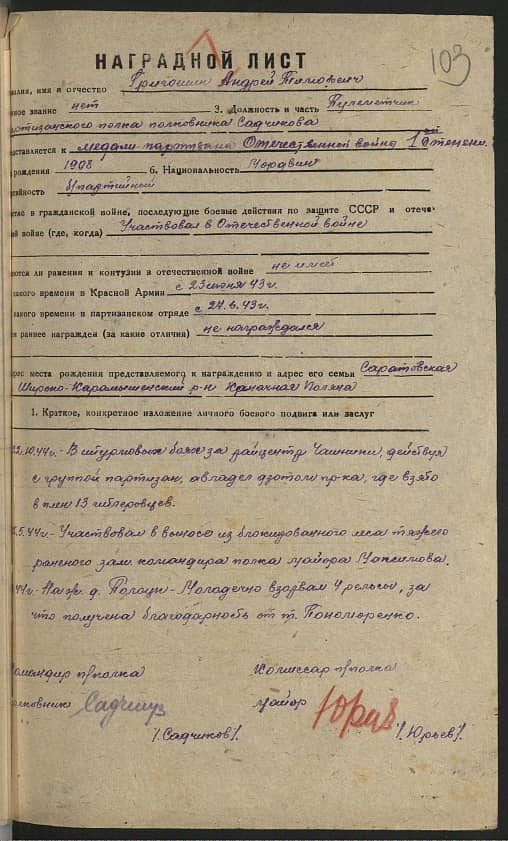 103
НАГРАДНОЙ ЛИСТ
милия, имя и отчество Григошин Андрей Титович
нное звание нет 3. Должность и часть Пулеметчик
артизанского полка полковника Садчикова
дставляется к медали партизана Отечественной война 1ой степени.
рождения 1908 6. Национальность Мордвин
тийность б/партийный
стие в гражданской войне, последующие боевые действия по защите СССР и отече-
ной войне (где, когда) Участвовал в Отечественной войне
ются ли ранения и контузии в отечественной войне не имел
какого времени в Красной Армии с 23 июня 43 г.
какого времени в партизанском отряде с 24.6.43 г.
м ранее награжден (за какие отличия) не награждался
рес места рождения представляемого к награждению и адрес его семьи Саратовская
Широко-Карамышенский р-н Поляна
1. Краткое, конкретное изложение личного боевого подвига или заслуг
.10.44 г. - В штурмовых боях за райцентр Чашники, действуя
с группой партизан, овладел дзотом пр-ка, где взято
в плен 13 гитлеровцев.
.5.44 г. - Участвовал в выносе из блокированного леса тяжело
раненого зам. командира полка майора Максимова.
44 г. На ж. д. Полоцк - Молодечно взорвал 4 рельсы, за
что получена благодарность от т. Пономаренко.
Командир п/полка Комиссар п/полка
олковник майор
/Садчиков/. /Юрьев/.